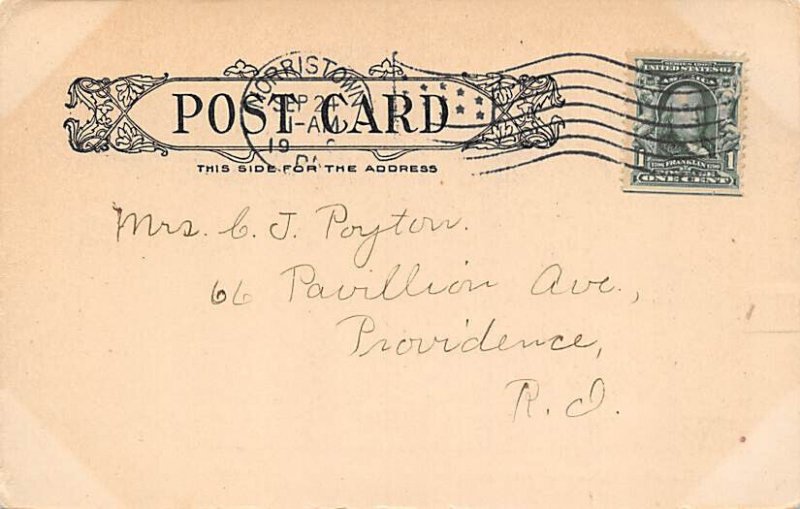 NORRISTOWN
SEP 24
-AM
19
POST CARD
THIS SIDE FOR THE ADDRESS
SERIES 1902
UNITED STATES OF
1 FRANKLIN 1
ONE CENT
Mrs. C. J. Poyton.
66 Pavillion Ave.,
Providence,
R. I.